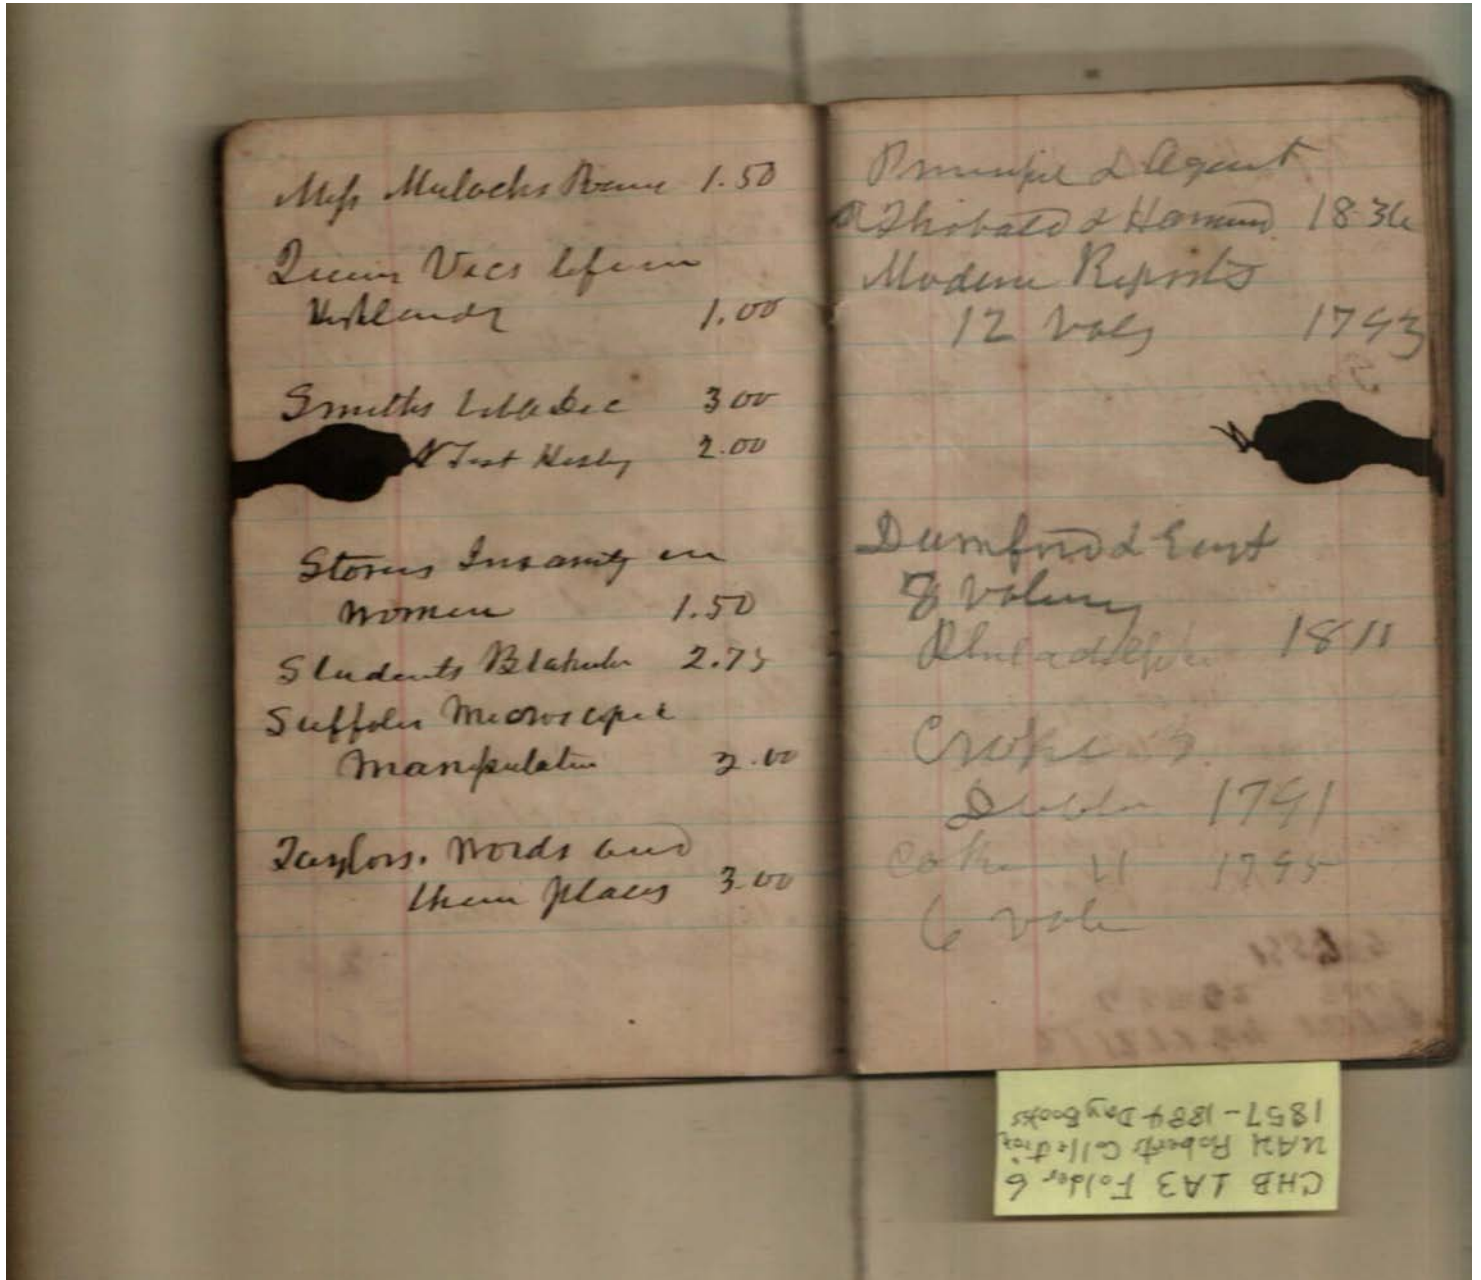 Miss Mulocks Poems 1.50
Queen Vics life in
Highlands 1.00
Smiths Bib Dic 3 00
N Test Histy 2.00
Storers Insanity in
Women 1.50
Students Blakstn 2.75
Suffolks Microscopic
Manipulation 2.00
Taylors. Words and
their places 3.00
Principal & Agent
Theobald & Hammond 1836
Modern Reports
12 Vols 1793
Durnford & East
8 Volumes
Philadelphia 1811
Croke 3
Dublin 1791
Coke 11 1795
6 vols
CHB 1A3 Folder 6
UAH Roberts Collection
1857-1884 Day Books